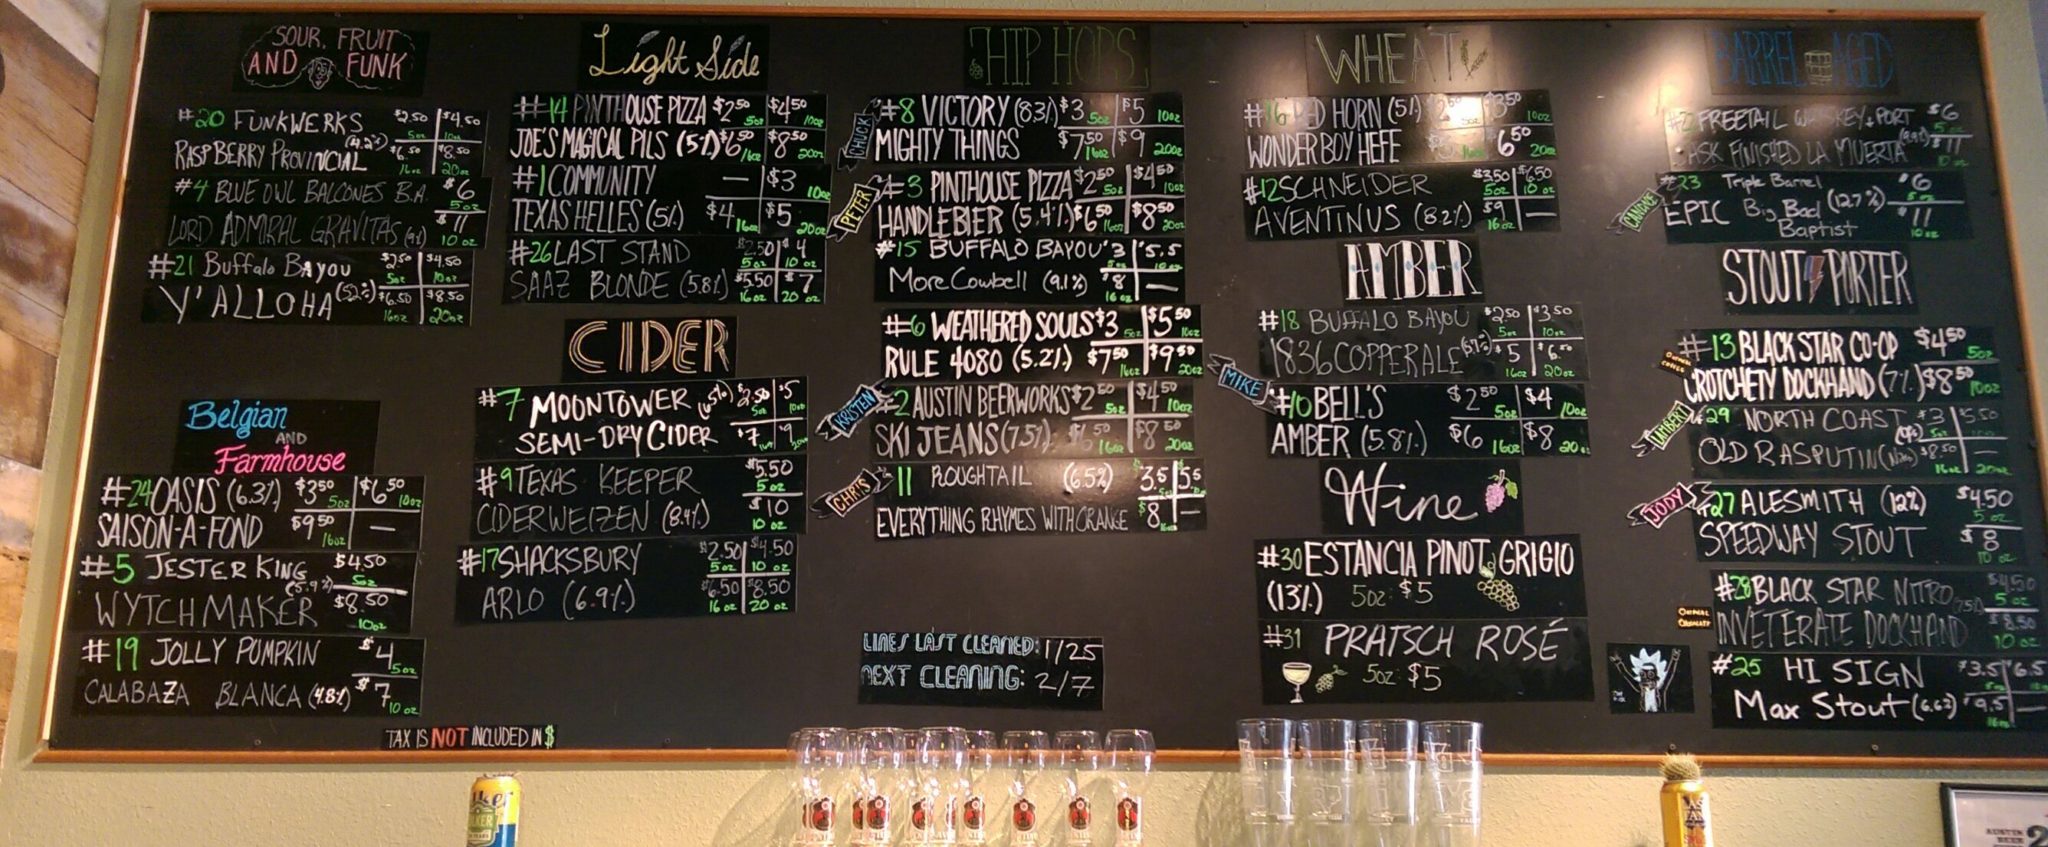 SOUR, FRUIT
AND FUNK
#20 FUNKWERKS $2.50 5oz $4.50 10oz
RASPBERRY PROVINCIAL (4.2%) $6.50 16oz $8.50 20oz
#4 BLUE OWL BALCONES B.A. $6 5oz
LORD ADMIRAL GRAVITAS (9%) $11 10oz
#21 Buffalo BAYOU $2.50 5oz $4.50 10oz
Y'ALLOHA (5.2%) $6.50 16oz $8.50 20oz
Belgian
AND
Farmhouse
#24 OASIS (6.3%) $3.50 5oz $6.50 10oz
SAISON-A-FOND $9.50 16oz —
#5 JESTER KING $4.50 5oz
WYTCHMAKER (5.9%) $8.50 10oz
#19 JOLLY PUMPKIN $4 5oz
CALABAZA BLANCA (4.8%) $7 10oz
TAX IS NOT INCLUDED IN $
Light Side
#14 PINTHOUSE PIZZA $2.50 5oz $4.50 10oz
JOE'S MAGICAL PILS (5%) $6.50 16oz $8.50 20oz
#1 COMMUNITY — $3 10oz
TEXAS HELLES (5%) $4 16oz $5 20oz
#26 LAST STAND $2.50 5oz $4 10oz
SAAZ BLONDE (5.8%) $5.50 16oz $7 20oz
CIDER
#7 MOONTOWER (6.5%) $2.50 5oz $5 10oz
SEMI-DRY CIDER $7 16oz $9 20oz
#9 TEXAS KEEPER $5.50 5oz
CIDERWEIZEN (8.4%) $10 10oz
#17 SHACKSBURY $2.50 5oz $4.50 10oz
ARLO (6.9%) $6.50 16oz $8.50 20oz
HIP HOPS
CHUCK
#8 VICTORY (8.3%) $3 5oz $5 10oz
MIGHTY THINGS $7.50 16oz $9 20oz
PETER
#3 PINTHOUSE PIZZA $2.50 5oz $4.50 10oz
HANDLEBIER (5.4%) $6.50 16oz $8.50 20oz
#15 BUFFALO BAYOU $3 5oz $5.5 10oz
More Cowbell (9.1%) $8 16oz —
#6 WEATHERED SOULS $3 5oz $5.50 10oz
RULE 4080 (5.2%) $7.50 16oz $9.50 20oz
KRISTEN
#2 AUSTIN BEERWORKS $2.50 5oz $4.50 10oz
SKI JEANS (7.5%) $6.50 16oz $8.50 20oz
CHRIS
#11 ROUGHTAIL (6.5%) $3.5 5oz $5.5
EVERYTHING RHYMES WITH ORANGE $8 16oz —
LINES LAST CLEANED: 1/25
NEXT CLEANING: 2/7
WHEAT
#16 RED HORN (5%) 5oz $3.50 10oz
WONDERBOY HEFE 16oz $6.50 20oz
#12 SCHNEIDER $3.50 5oz $6.50 10oz
AVENTINUS (8.2%) $9 16oz —
AMBER
#18 BUFFALO BAYOU $2.50 5oz $3.50 10oz
1836 COPPERALE (5.7%) $5 16oz $6.50 20oz
MIKE
#10 BELL'S $2.50 5oz $4 10oz
AMBER (5.8%) $6 16oz $8 20oz
Wine
#30 ESTANCIA PINOT GRIGIO
(13%) 5oz $5
#31 PRATSCH ROSÉ
5oz $5
BARREL AGED
FREETAIL WHISKEY + PORT $6 5oz
CASK FINISHED LA MUERTA $11 10oz
CANDACE
#23 Triple Barrel $6 5oz
EPIC Big Bad Baptist (12.7%) $11 10oz
STOUT PORTER
OATMEAL
COFFEE
#13 BLACK STAR CO-OP $4.50 5oz
CROTCHETY DOCKHAND (7%) $8.50 10oz
LAMBERT
#29 NORTH COAST $3 5oz $5.50
OLD RASPUTIN (Nitro) $8.50 16oz — 20oz
JODY
#27 ALESMITH (12%) $4.50 5oz
SPEEDWAY STOUT $8 10oz
OATMEAL
CHOCOLATE
#28 BLACK STAR NITRO $4.50 5oz
INVETERATE DOCKHAND $8.50 10oz
#25 HI SIGN $3.5 $6.5
Max Stout $9.5 16oz —
AUSTIN
BEER